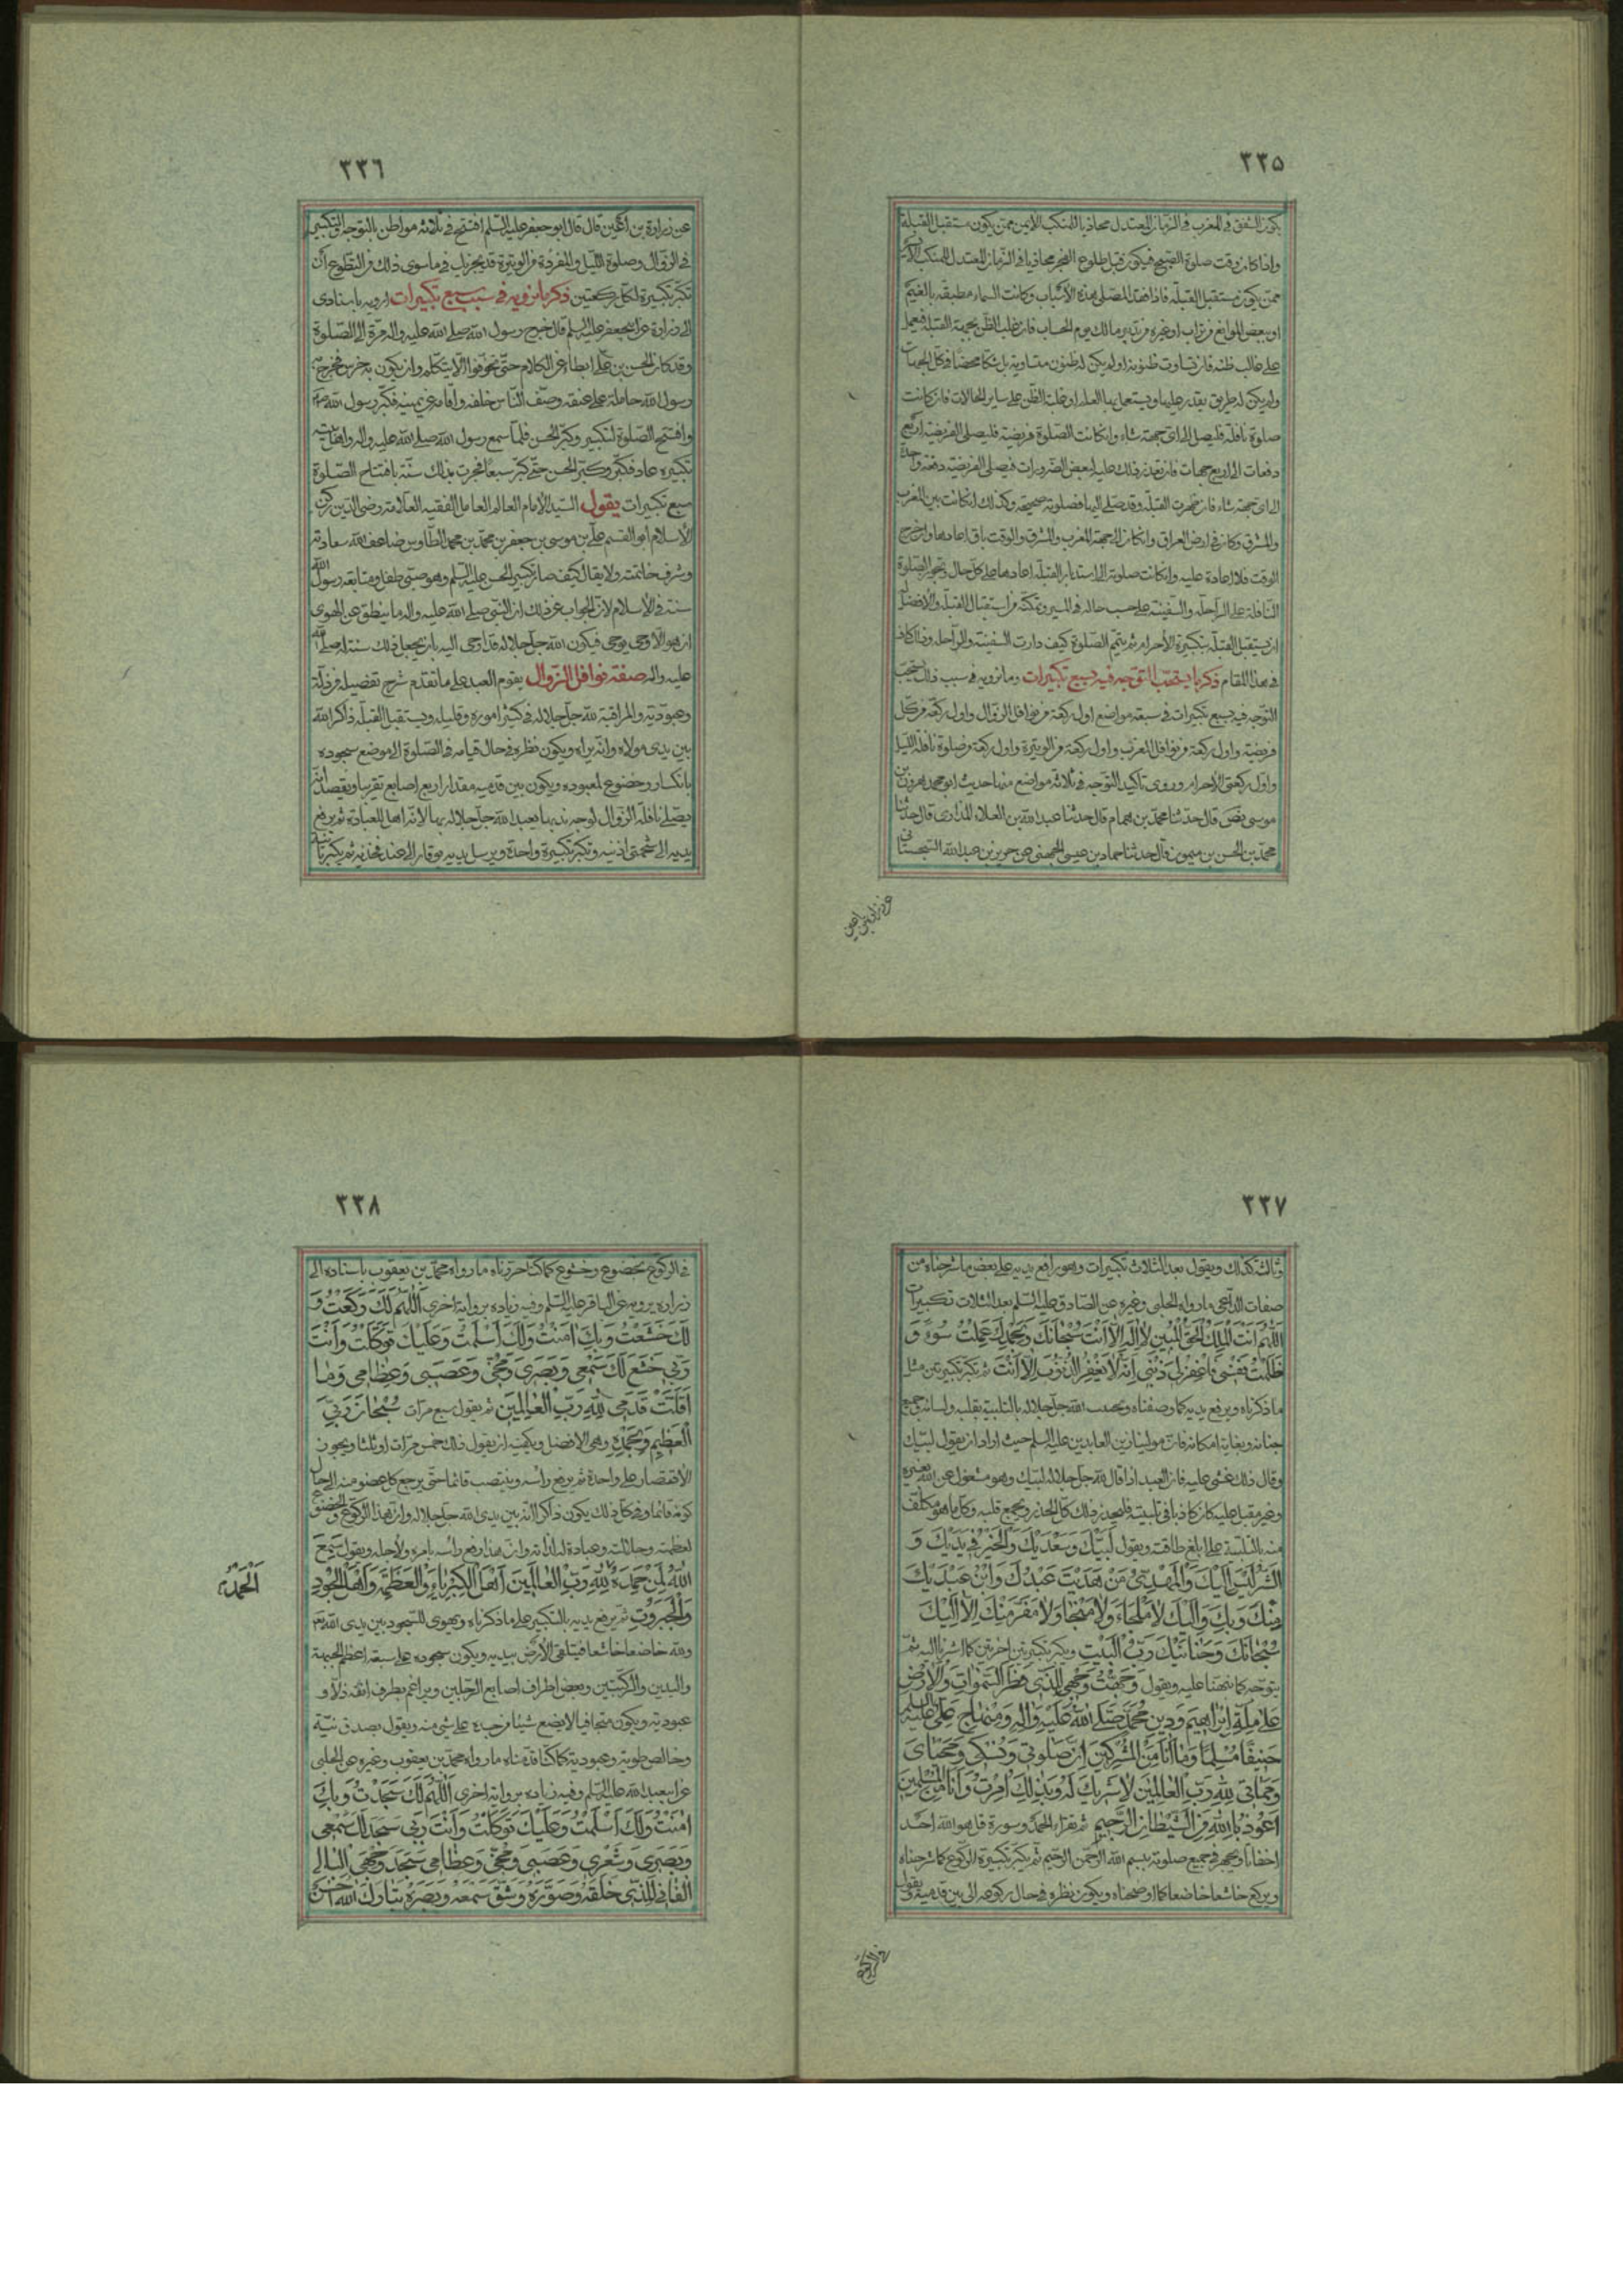 ٣٣٥
يكون الشفق في المغرب في الزمان المعتدل محاذيا للمنكب الايمن ممن يكون مستقبل القبلة
واذا كان وقت صلوة الصبح فيكون قبل طلوع الفجر محاذيا في الزمان المعتدل للمنكب الايسر
ممن يكون مستقبل القبلة فاذا فقد المصلى هذه الأسباب وكانت السماء مطبقة بالغيم
او ببعض الموانع من تراب او غيره من تدبير مالك يوم الحساب فان غلب الظن بجهة القبلة فيعمل
على غالب ظنه فان تساوت ظنونه او لم يكن له ظنون متساوية بل شكا محضا في كل الجهات
ولم يكن له طريق يقدر عليها ويستعمل بها العلم او غلبة الظن على ساير الحالات فان كانت
صلوة نافلة فليصل الى اى جهة شاء وان كانت الصلوة فريضة فليصلى الفريضة اربع
دفعات الى اربع جهات فان تعذر ذلك عليه لبعض الضرورات فيصلى الفريضة دفعة واحدة
الى اى جهة شاء فان ظهرت القبلة وقد صلى اليها فصلوته صحيحة وكذلك ان كانت بين المغرب
والمشرق وكان في ارض العراق وان كان الى جهة المغرب والمشرق والوقت باق اعادها وان خرج
الوقت فلا اعادة عليه وان كانت صلوته الى استدبار القبلة اعادها على كل حال وتجوز الصلوة
النافلة على الراحلة والسفينة على حسب حاله في السير وتمكنه من استقبال القبلة والافضل
ان يستقبل القبلة بتكبيرة الأحرام ثم يتمم الصلوة كيف دارت السفينة والراحلة وذا كاف
في هذا المقام ذكر ما يستحب التوجه فيه بسبع تكبيرات وما نرويه في سبب ذلك يستحب
التوجه فيه بسبع تكبيرات في سبعة مواضع اول ركعة من نوافل الزوال واول ركعة من كل
فريضة واول ركعة من نوافل المغرب واول ركعة من الوتيرة واول ركعة من صلوة نافلة الليل
واول ركعتى الاحرام وروى تأكيد التوجه في ثلاثة مواضع منها حديث ابو محمد هرون بن
موسى رض قال حدثنا محمد بن همام قال حدثنا عبدالله بن العلاء المذارى قال حدثنا
محمد بن الحسن بن ميمون قال حدثنا حماد بن عيسى الجهنى عن حريز بن عبدالله السجستانى
عن زرارة بن اعين
٣٣٦
عن زرارة بن اعين قال قال ابو جعفر عليه السلم افتتح في ثلاثة مواطن بالتوجه والتكبير
في الزوال وصلوة الليل والمفردة من الوتيرة قد يجزيك في ما سوى ذلك من التطوع ان
تكبر تكبيرة لكل ركعتين ذكر ما نرويه في سبب سبع تكبيرات ارويه باسنادى
الى زرارة عن ابى جعفر عليه السلم قال خرج رسول الله صلى الله عليه واله مرة الى الصلوة
وقد كان الحسن بن على ابطاء عن الكلام حتى تخوفوا الا يتكلم وان يكون به خرس فخرج به
رسول الله حامله على عنقه وصف الناس خلفه واقامه عن يمينه فكبر رسول الله ص
وافتتح الصلوة لتكبير وكبر الحسن فلما سمع رسول الله صلى الله عليه واله واهل بيته
تكبيره عاد فكبر وكبر الحسن حتى كبر سبعا فجرت بذلك سنة بافتتاح الصلوة
سبع تكبيرات يقول السيد الأمام العالم العامل الفقيه العلامة رضى الدين ركن
الأسلام ابو القسم على بن موسى بن جعفر بن محمد بن محمد الطاوس ضاعف الله سعادته
وشرف خاتمته ولا يقال كيف صار تكبير الحسن عليه السلم وهو صبى طفل ومتابعة رسول الله
سنة في الأسلام لان الجواب عن ذلك ان النبى صلى الله عليه واله ما ينطق عن الهوى
ان هو الا وحى يوحى فيكون الله جل جلاله قد اوحى اليه بان يجعل ذلك سنة له صلى الله
عليه واله صفة نوافل الزوال يقوم العبد على ما تقدم شرح تفصيله من ذلة
وعبودية والمراقبة لله جل جلاله في كثير اموره وقليله ويستقبل القبلة ذاكرا لله
بين يدى مولاه وانه يراه ويكون نظره في حال قيامه في الصلوة الى موضع سجوده
بانكسار وخضوع لمعبوده ويكون بين قدميه مقدار اربع اصابع تقريبا ويقصد انه
يصلى نافلة الزوال لوجه ندبها يعبد الله جل جلاله بها لانه اهل للعبادة ثم يرفع
يديه الى شحمتى اذنيه وتكبر تكبيرة واحدة ويرسل يديه بوقار الى عند فخذيه ثم يكبر ثانية
٣٣٧
وثالثة كذلك ويقول بعد الثلاث تكبيرات وهو رافع يديه على بعض ما شرحناه من
صفات الداعى ما رواه الحلبى وغيره عن الصادق عليه السلم بعد الثلاث تكبيرات
اللهم انت الملك الحق المبين لا اله الا انت سبحانك وبحمدك عملت سوء و
ظلمت نفسى فاغفر لى ذنبى انه لا يغفر الذنوب الا انت ثم تكبر تكبيرتين مثل
ما ذكرناه ويرفع يديه كما وصفناه ويجيب الله جل جلاله بالتلبية بقلبه ولسانه وجميع
جنانه وبغاية امكانه فان مولينا زين العابدين عليه السلم حيث اراد ان يقول لبيك
وقال ذلك غشى عليه فان العبد اذا قال لله جل جلاله لبيك وهو مشغول عن الله بغيره
وغير مقبل عليه كان كاذبا في تلبيته فليحذر ذلك كل الحذر ويجمع قلبه وكل ما هو مكلف
منه بالتلبية على ابلغ طاقته ويقول لبيك وسعديك والخير في يديك و
الشر ليس اليك والمهدى من هديت عبدك وابن عبديك
منك وبك واليك لا ملجاء ولا منجا ولا مفر منك الا اليك
سبحانك وحنانيك رب البيت ويكبر تكبيرتين اخرتين كما اشرنا اليه ثم
يتوجه كما نبهنا عليه ويقول وجهت وجهى للذى فطر السموات والارض
على ملة ابراهيم ودين محمد صلى الله عليه واله ومنهاج على عليه السلم
حنيفا مسلما وما انا من المشركين ان صلوتى ونسكى ومحياى
ومماتى لله رب العالمين لا شريك له وبذلك امرت وانا من المسلمين
اعوذ بالله من الشيطان الرجيم ثم تقراء الحمد وسورة قل هو الله احد
اخفاتا ويجهر في جميع صلوته ببسم الله الرحمن الرحيم ثم يكبر تكبيرة الركوع كما شرحناه
ويركع خاشعا خاضعا كما اوضحناه ويكون نظره في حال ركوعه الى بين قدميه ويقول
في الركوع
٣٣٨
في الركوع بخضوع وخشوع كما كنا حررناه ما رواه محمد بن يعقوب باسناده الى
زرارة يرويه عن الباقر عليه السلم وفيه زيادة برواية اخرى اللهم لك ركعت و
لك خشعت وبك امنت ولك اسلمت وعليك توكلت وانت
ربى خشع لك سمعى وبصرى ومخى وعصبى وعظامى وما
اقلت قدمى لله رب العالمين ثم يقول سبع مرات سبحان ربى
العظيم وبحمده وهى الافضل ويكفيه ان يقول ذلك خمس مرات او ثلثا ويجوز
الأقتصار على واحدة ثم يرفع راسه وينتصب قائما حتى يرجع كل عضو منه الى حال
كونه قائما وفي كل ذلك يكون ذاكرا انه بين يدى الله جل جلاله وان هذا الركوع والخضوع
لعظمته وجلالته وعبادة له لذاته وان هذا رفع راسه بامره ولأجله ويقول سمع
الله لمن حمده لله رب العالمين اهل الكبرياء والعظمة واهل الجود
والجبروت ثم يرفع يديه بالتكبير على ما ذكرناه ويهوى للسجود بين يدى الله تعم
ولله خاضعا خاشعا فيتلقى الأرض بيديه ويكون سجوده على سبعة اعظم الجبهة
واليدين والركبتين وبعض اطراف اصابع الرجلين ويراغم بطرف انفه ذلا و
عبودية ويكون متجافيا لا يضع شيئا من جسده على شىء منه ويقول بصدق نية
وخالص طوية وعبودية كما كنا قدمناه ما رواه محمد بن يعقوب وغيره عن الحلبى
عن ابى عبدالله عليه السلم وفيه زيادة برواية اخرى اللهم لك سجدت وبك
امنت ولك اسلمت وعليك توكلت وانت ربى سجد لك سمعى
وبصرى وشعرى وعصبى ومخى وعظامى سجد وجهى البالى
الفانى للذى خلقه وصوره وشق سمعه وبصره تبارك الله احسن
الحمد